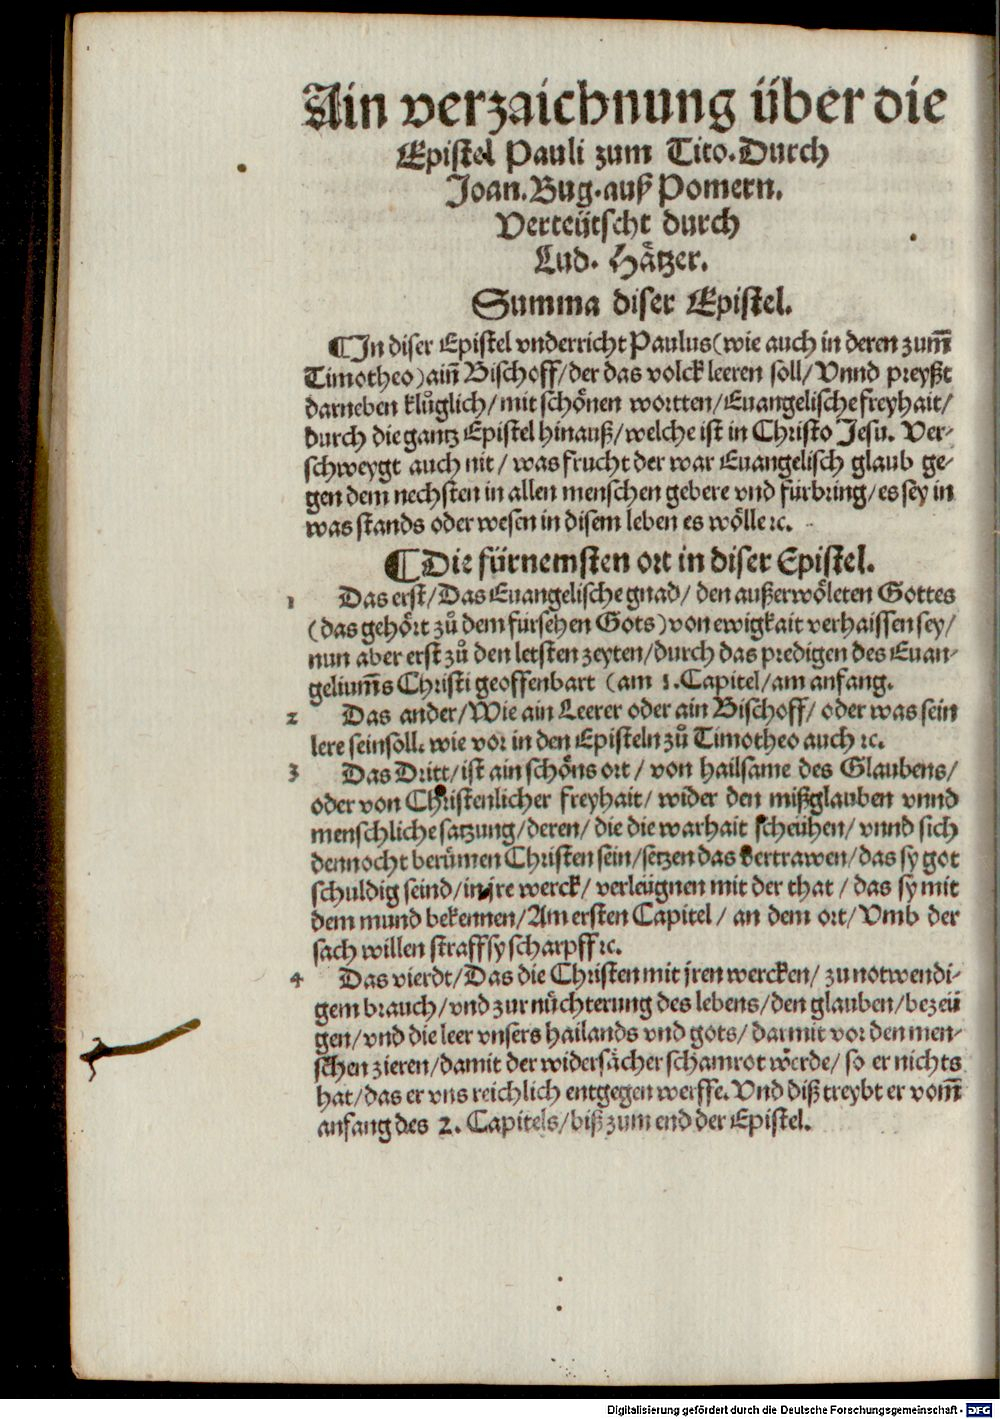 Ain verzaichnung über die
Epistel Pauli zum Tito. Durch
Joan. Bug. auß Pomern.
Verteütscht durch
Lud. Hätzer.
Summa diser Epistel.
¶ In diser Epistel vnderricht Paulus (wie auch in deren zum̃
Timotheo) ain̄ Bischoff / der das volck leeren soll / Vnnd preyßt
darneben klůglich / mit schönen wortten / Euangelische freyhait /
durch die gantz Epistel hinauß / welche ist in Christo Jesu. Ver-
schweygt auch nit / was frucht der war Euangelisch glaub ge-
gen dem nechsten in allen menschen gebere vnd fürbring / es sey in
was stands oder wesen in disem leben es wölle ꝛc.
¶ Die fürnemsten ort in diser Epistel.
1 Das erst / Das Euangelische gnad / den außerwöleten Gottes
(das gehört zů dem fürsehen Gots) von ewigkait verhaissen sey /
nun aber erst zů den letsten zeyten / durch das predigen des Euan-
gelium̃s Christi geoffenbart (am 1. Capitel / am anfang.
2 Das ander / Wie ain Leerer oder ain Bischoff / oder was sein
lere sein soll. wie vor in den Episteln zů Timotheo auch ꝛc.
3 Das Dritt / ist ain schöns ort / von hailsame des Glaubens /
oder von Christenlicher freyhait / wider den mißglauben vnnd
menschliche satzung / deren / die die warhait scheühen / vnnd sich
dennocht berůmen Christen sein / setzen das vertrawen / das sy got
schuldig seind / in jre werck / verleügnen mit der that / das sy mit
dem mund bekennen / Am ersten Capitel / an dem ort / Vmb der
sach willen straff sy scharpff ꝛc.
4 Das vierdt / Das die Christen mit jren wercken / zu notwendi-
gem brauch / vnd zur nüchterung des lebens / den glauben / bezeü
gen / vnd die leer vnsers hailands vnd gots / darmit vor den men-
schen zieren / damit der widersächer schamrot werde / so er nichts
hat / das er vns reichlich entgegen werffe. Vnd diß treybt er vom̃
anfang des 2. Capitels / biß zum end der Epistel.
Digitalisierung gefördert durch die Deutsche Forschungsgemeinschaft - DFG